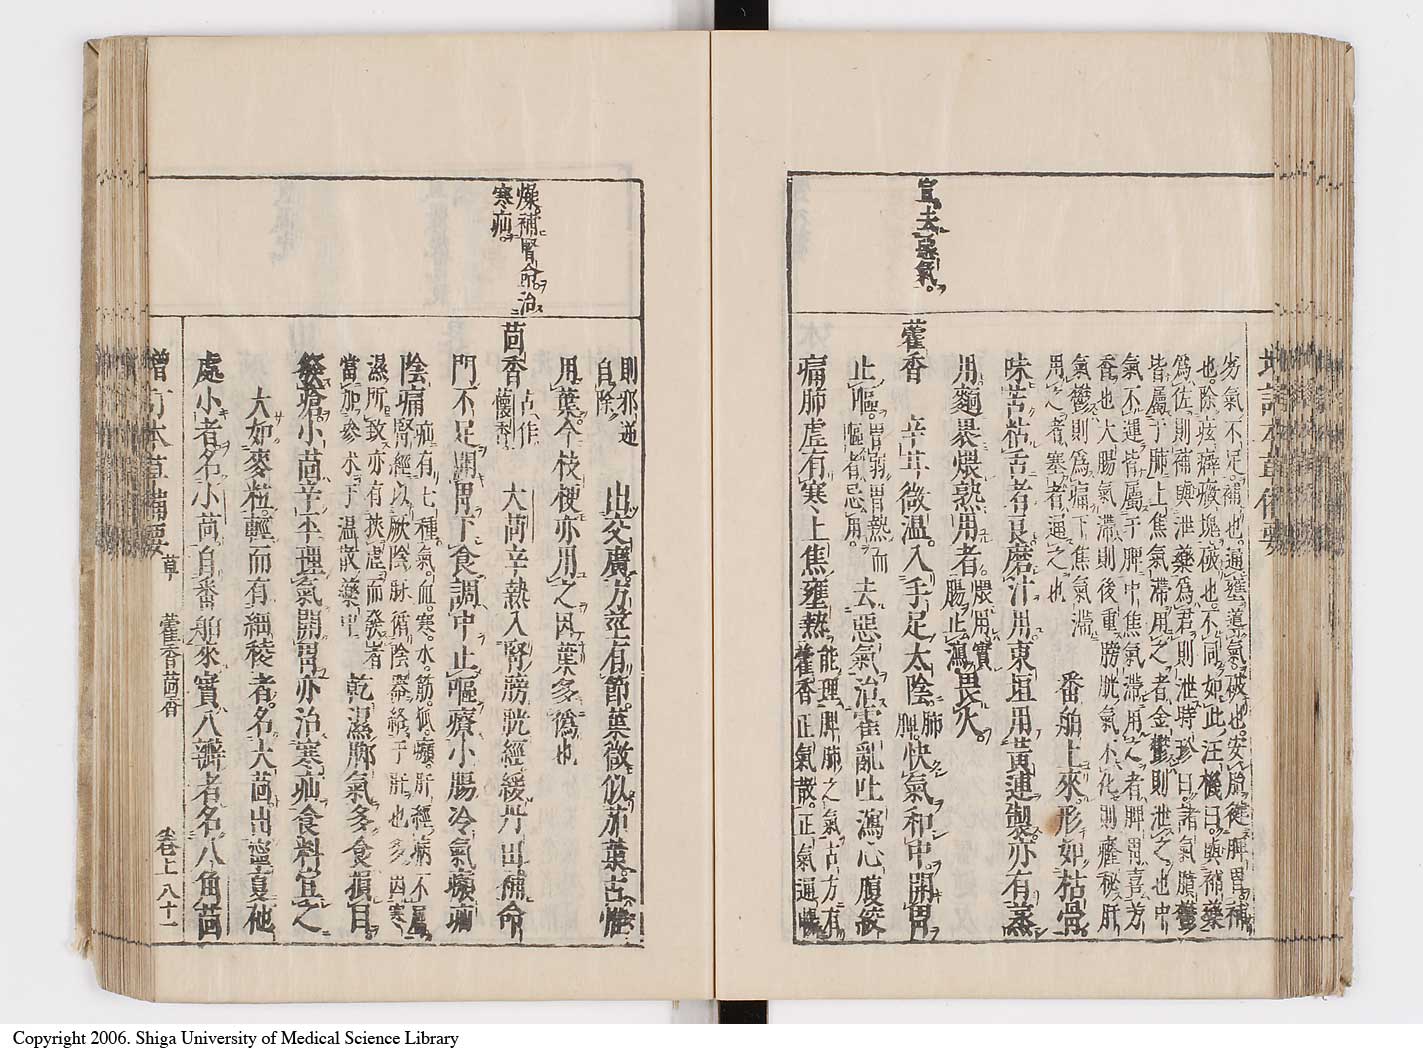 宣去惡氣
劣氣不足補也通壅導氣破也安胃健脾胃補
也除痃癖癥塊破也不同如此汪機曰與補藥
爲佐則補與泄藥爲君則泄時珍曰諸氣膹鬱
皆屬于肺上焦氣滯用之者金鬱則泄之也中
氣不運皆屬于脾中焦氣滯用之者脾胃喜芳
香也大腸氣滯則後重膀胱氣不化則癃秘肝
氣鬱則爲痛下焦氣滯
用之者塞者通之也
番舶上來形如枯骨
味苦粘舌者良磨汁用東垣用黃連製亦有蒸
用麵裹煨熟用者
煨用實
腸止瀉
畏火
藿香
辛甘微温入手足太陰
肺
脾
快氣和中開胃
止嘔
胃弱胃熱而
嘔者忌用
去惡氣治霍亂吐瀉心腹絞
痛肺虛有寒上焦壅熱
能理脾肺之氣古方有
藿香正氣散正氣通暢
燥補腎命治
寒疝
則邪逆
自除
出交廣方莖有節葉微似茄葉古惟
用葉今枝梗亦用之因葉多僞也
茴香
古作
懷香
大茴辛熱入腎膀胱經緩丹田補命
門不足開胃下食調中止嘔療小腸冷氣癩疝
陰痛
疝有七種氣血寒水筋狐癩肝經病不屬
腎經以厥陰脉絡陰器絡于肝也多因寒
濕所致亦有挾虛而發者
當加參朮于温散藥中
乾濕脚氣多食損目
發瘡小茴辛平理氣開胃亦治寒疝食料宜之
大如麥粒輕而有細稜者名大茴出寧夏他
處小者名小茴自番舶來實八瓣者名八角茴
增訂本草備要
草
藿香茴香
卷上
八十一